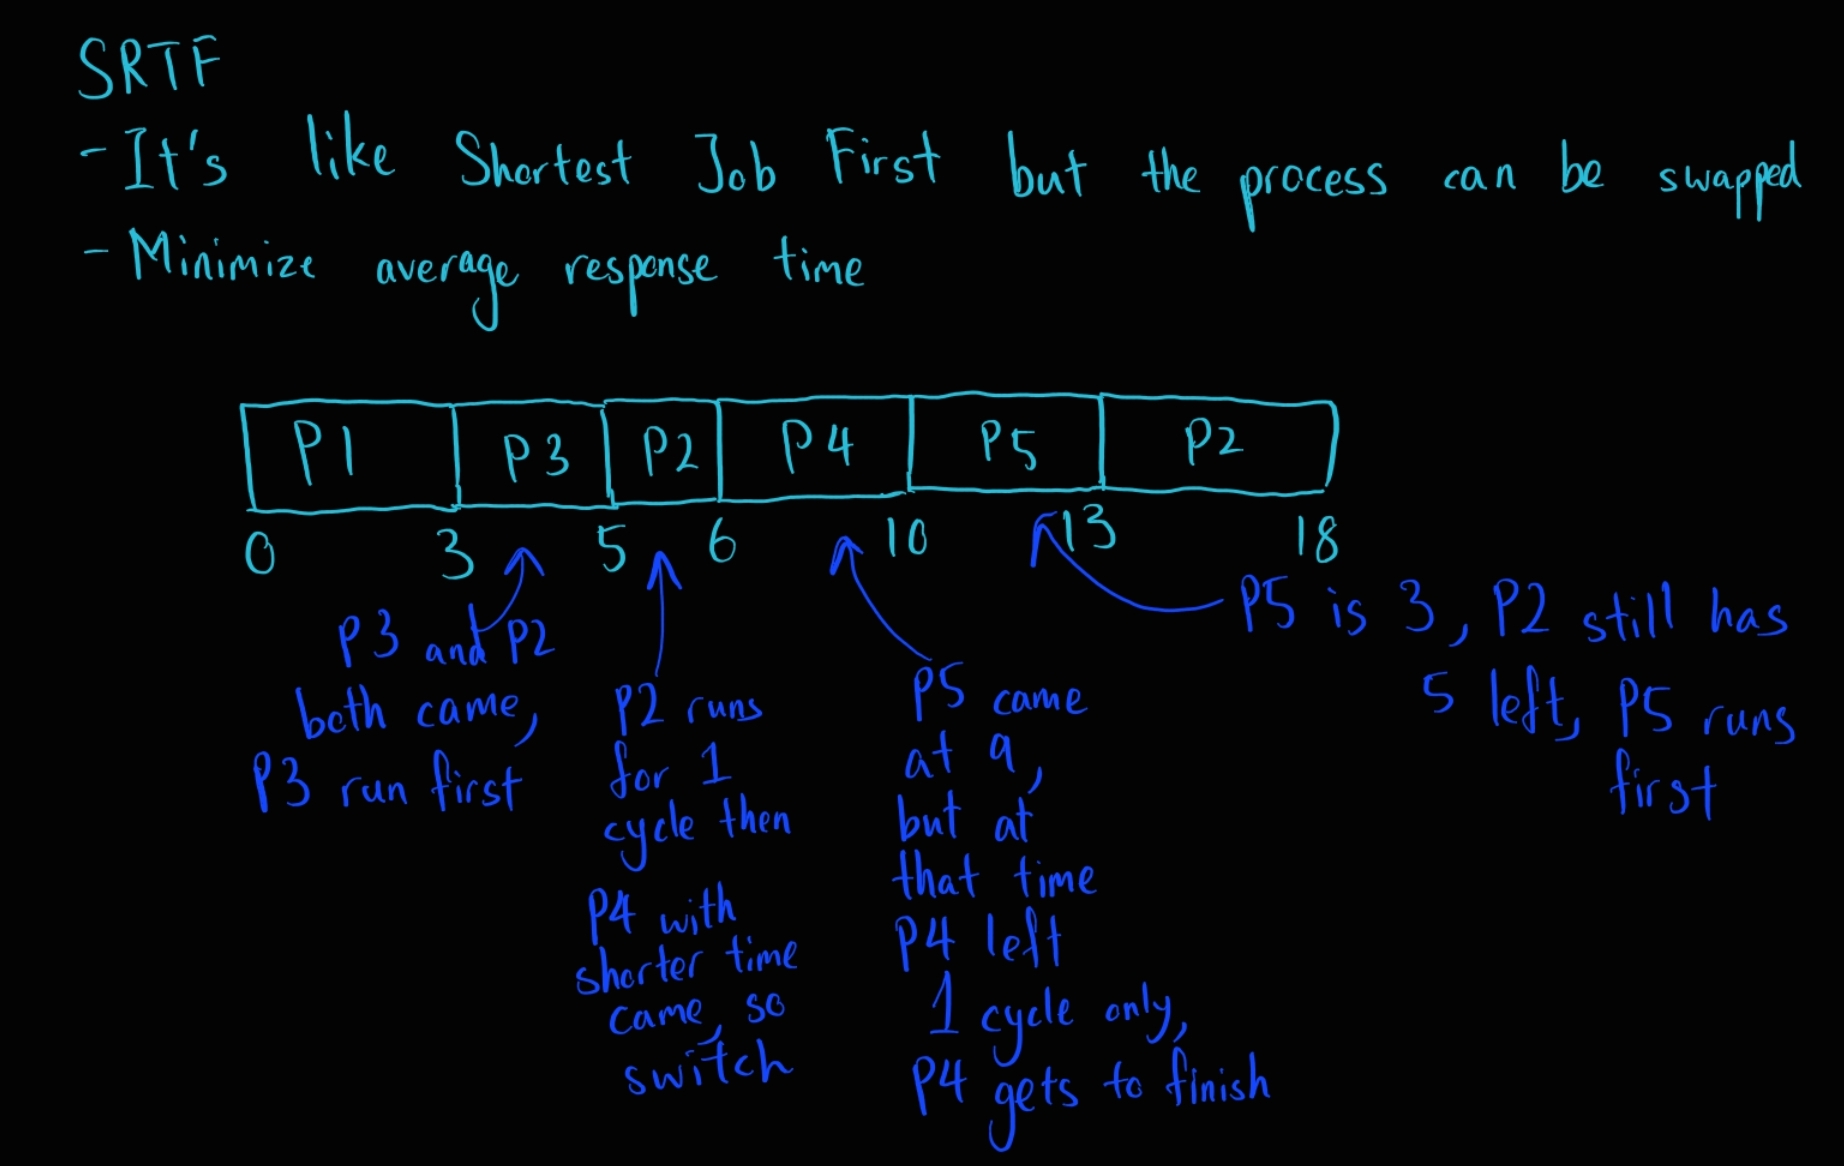 SRTF
- It's like Shortest Job First but the process can be swapped
- Minimize average response time
P1 P3 P2 P4 P5 P2
0 3 5 6 10 13 18
P3 and P2
both came,
P3 run first
P2 runs
for 1
cycle then
P4 with
shorter time
came, so
switch
P5 came
at 9,
but at
that time
P4 left
1 cycle only,
P4 gets to finish
P5 is 3, P2 still has
5 left, P5 runs
first